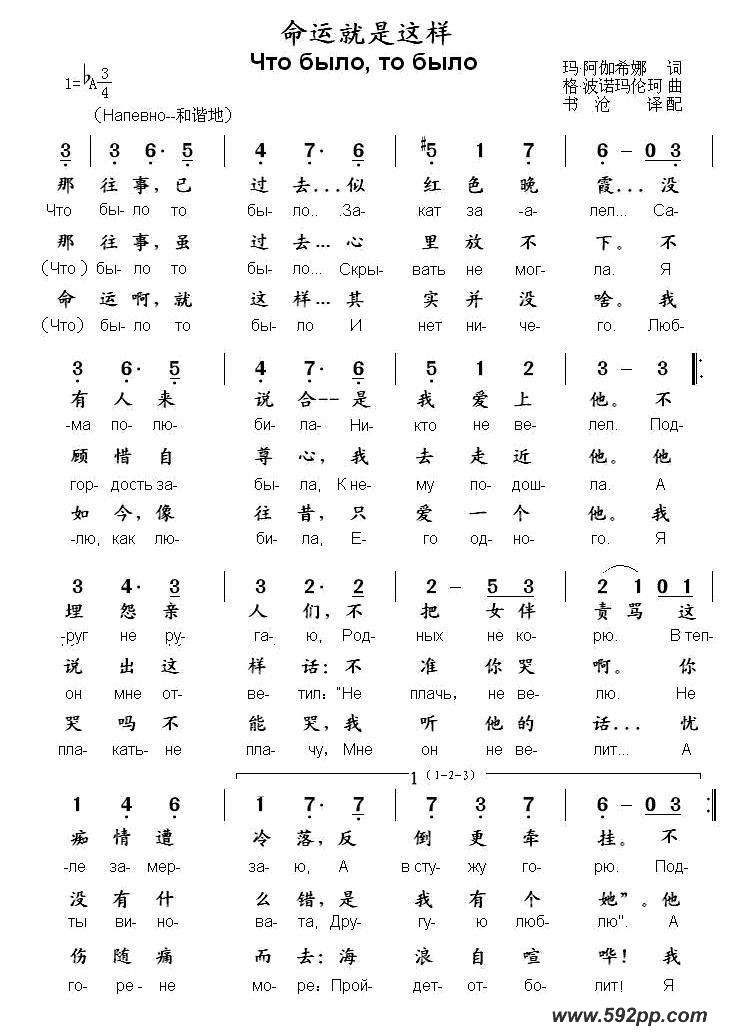 命运就是这样
Что было, то было
1=♭A 3/4
玛·阿伽希娜 词
格·波诺玛伦珂 曲
书 沧 译配
（Напевно--和谐地）
3 | 3 6· 5 | 4 7· 6 | #5 1 7 | 6 – 0 3 |
那 往 事, 已 过 去... 似 红 色 晚 霞... 没
Что бы- ло то бы- ло.. .За- кат за -а- лел... Са-
那 往 事, 虽 过 去... 心 里 放 不 下。 不
(Что ) бы- ло то бы- ло... Скры- вать не мог- ла. Я
命 运 啊, 就 这 样... 其 实 并 没 啥。 我
(Что) бы- ло то бы- ло И нет ни- че- го. Люб-
3 6· 5 | 4 7· 6 | 5 1 2 | 3 – 3 :
有 人 来 说 合-- 是 我 爱 上 他。 不
-ма по- лю- би- ла- Ни- кто не ве- лел. Под-
顾 惜 自 尊 心, 我 去 走 近 他。 他
гор- дость за- бы- ла, К не- му по- дош- ла. А
如 今, 像 往 昔, 只 爱 一 个 他。 我
-лю, как лю- би- ла, Е- го од- но- го. Я
3 4· 3 | 3 2· 2 | 2 – 5 3 | 2 1 0 1 |
埋 怨 亲 人 们, 不 把 女 伴 责 骂 这
-руг не ру- га- ю, Род- ных не ко- рю. В теп-
说 出 这 样 话: 不 准 你 哭 啊。 你
он мне от- ве- тил: "Не плачь, не ве- лю. Не
哭 吗 不 能 哭, 我 听 他 的 话... 忧
пла- кать- не пла- чу, Мне он не ве- лит... А
1 (1-2-3)
1 4 6 | 1 7· 7 | 7 3 7 | 6 – 0 3 :
痴 情 遭 冷 落, 反 倒 更 牵 挂。 不
-ле за- мер- за- ю, А в сту- жу го- рю. Под-
没 有 什 么 错, 是 我 有 个 她”。 他
ты ви- но- ва- та, Дру- гу- ю люб- лю". А
伤 随 痛 而 去: 海 浪 自 喧 哗! 我
го- ре - не мо- ре: Прой- дет- от- бо- лит! Я
www.592pp.com